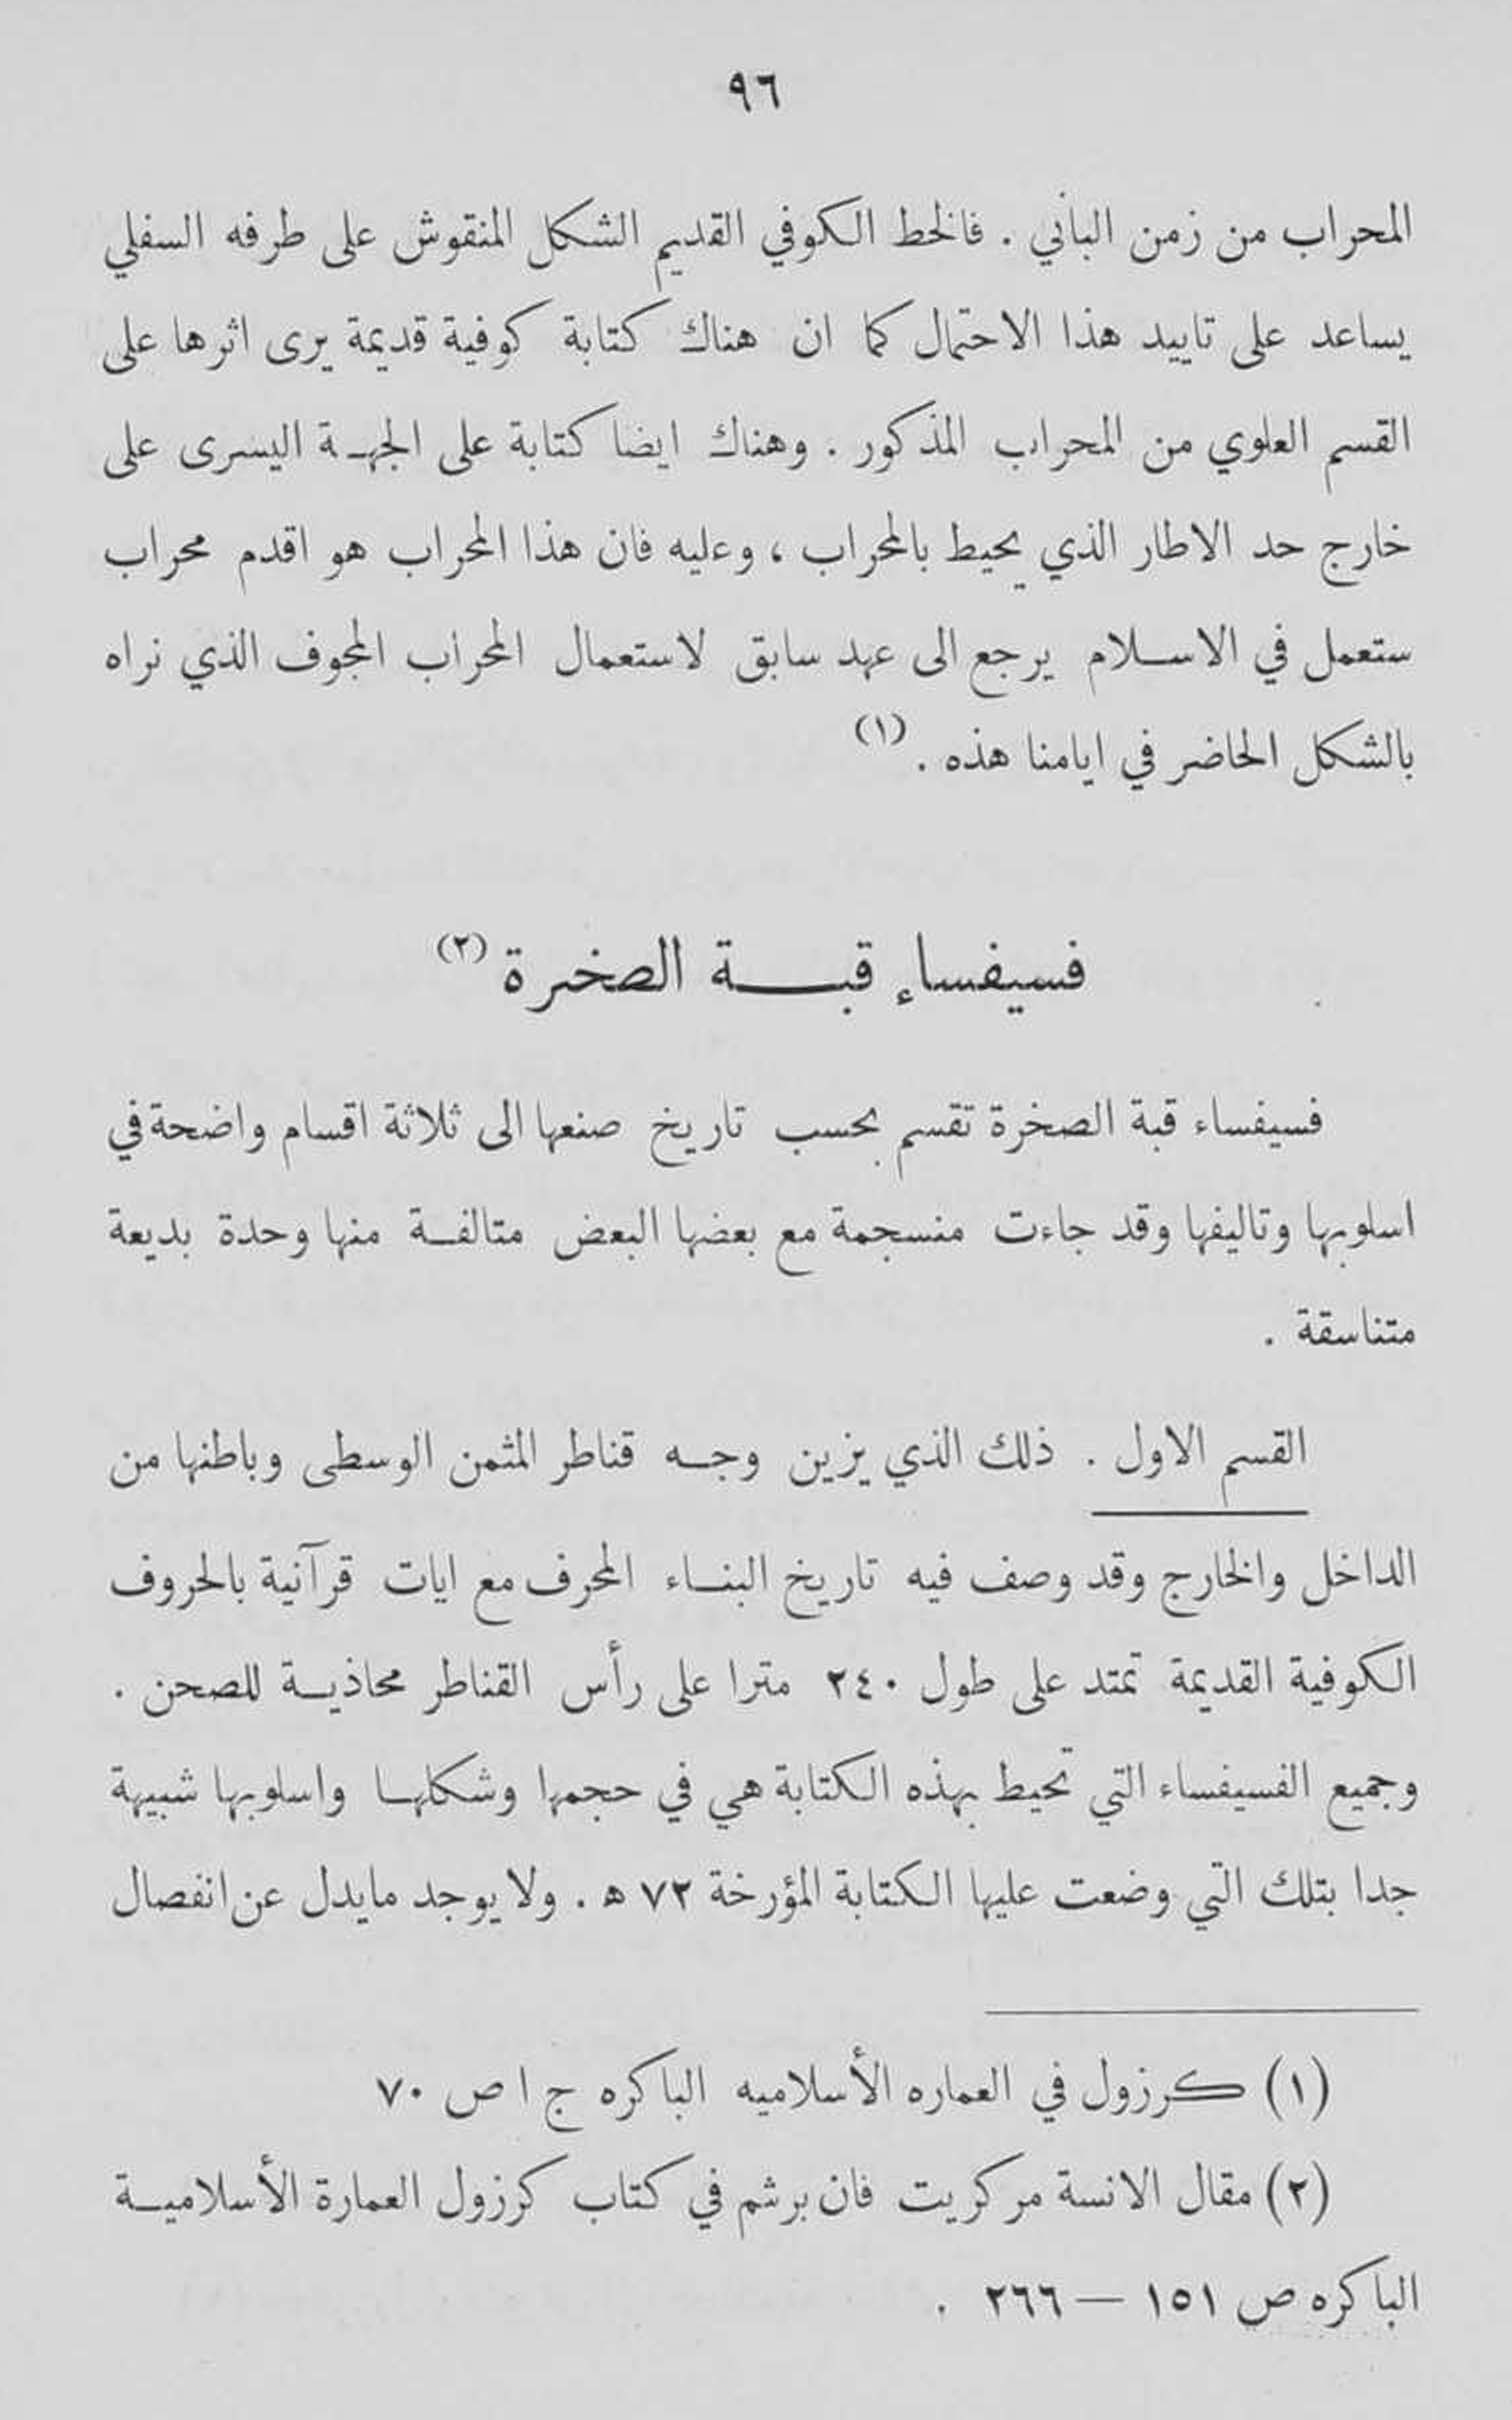 ٩٦
المحراب من زمن الباني . فالخط الكوفي القديم الشكل المنقوش على طرفه السفلي
يساعد على تاييد هذا الاحتمال كما ان هناك كتابة كوفية قديمة يرى اثرها على
القسم العلوي من المحراب المذكور . وهناك ايضا كتابة على الجهة اليسرى على
خارج حد الاطار الذي يحيط بالمحراب ، وعليه فان هذا المحراب هو اقدم محراب
ستعمل في الاسلام يرجع الى عهد سابق لاستعمال المحراب المجوف الذي نراه
بالشكل الحاضر في ايامنا هذه . (١)
فسيفساء قبة الصخرة (٢)
فسيفساء قبة الصخرة تقسم بحسب تاريخ صنعها الى ثلاثة اقسام واضحة في
اسلوبها وتاليفها وقد جاءت منسجمة مع بعضها البعض متالفة منها وحدة بديعة
متناسقة .
القسم الاول . ذلك الذي يزين وجه قناطر المثمن الوسطى وباطنها من
الداخل والخارج وقد وصف فيه تاريخ البناء المحرف مع ايات قرآنية بالحروف
الكوفية القديمة تمتد على طول ٢٤٠ مترا على رأس القناطر محاذية للصحن .
وجميع الفسيفساء التي تحيط بهذه الكتابة هي في حجمها وشكلها واسلوبها شبيهة
جدا بتلك التي وضعت عليها الكتابة المؤرخة ٧٢ ه . ولا يوجد مايدل عن انفصال
(١) كرزول في العماره الأسلاميه الباكره ج ١ ص ٧٠
(٢) مقال الانسة مركريت فان برشم في كتاب كرزول العمارة الأسلامية
الباكره ص ١٥١ — ٢٦٦ .